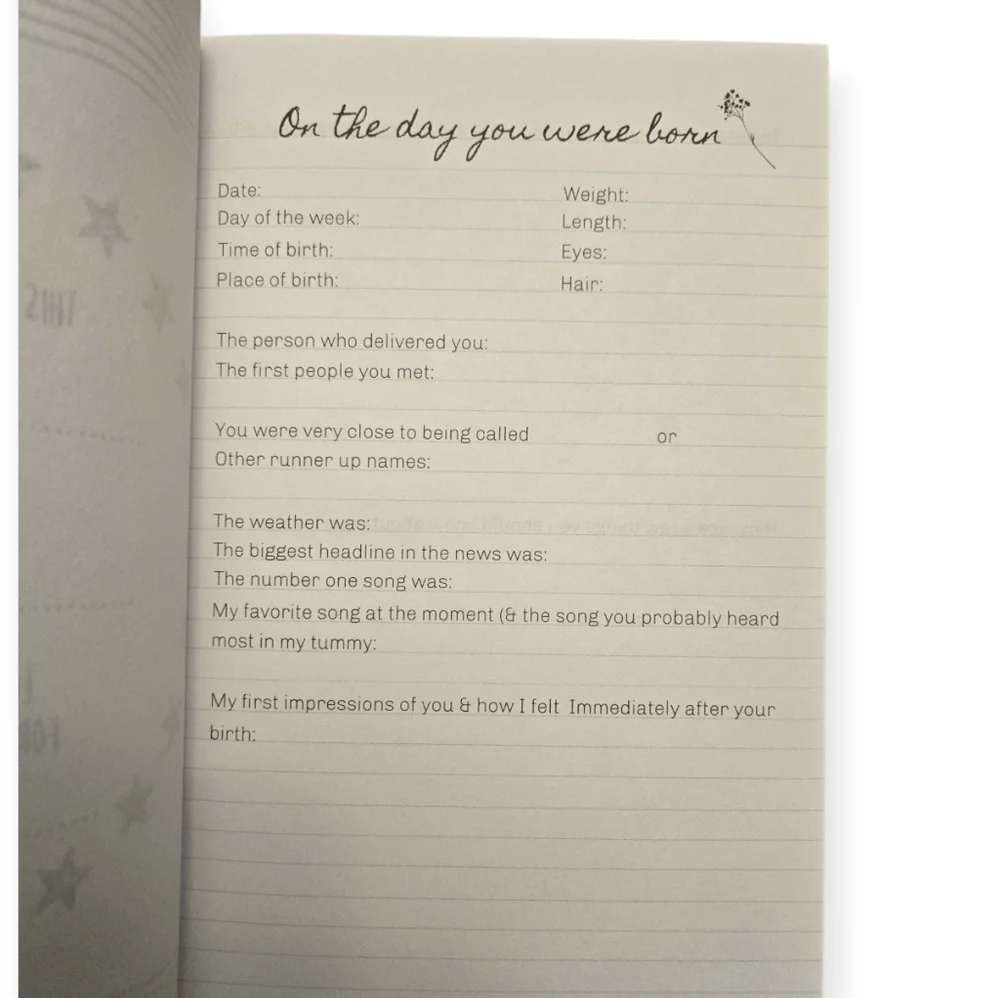 On the day you were born
Date:
Weight:
Day of the week:
Length:
Time of birth:
Eyes:
Place of birth:
Hair:
The person who delivered you:
The first people you met:
You were very close to being called or
Other runner up names:
The weather was:
The biggest headline in the news was:
The number one song was:
My favorite song at the moment (& the song you probably heard
most in my tummy:
My first impressions of you & how I felt Immediately after your
birth: